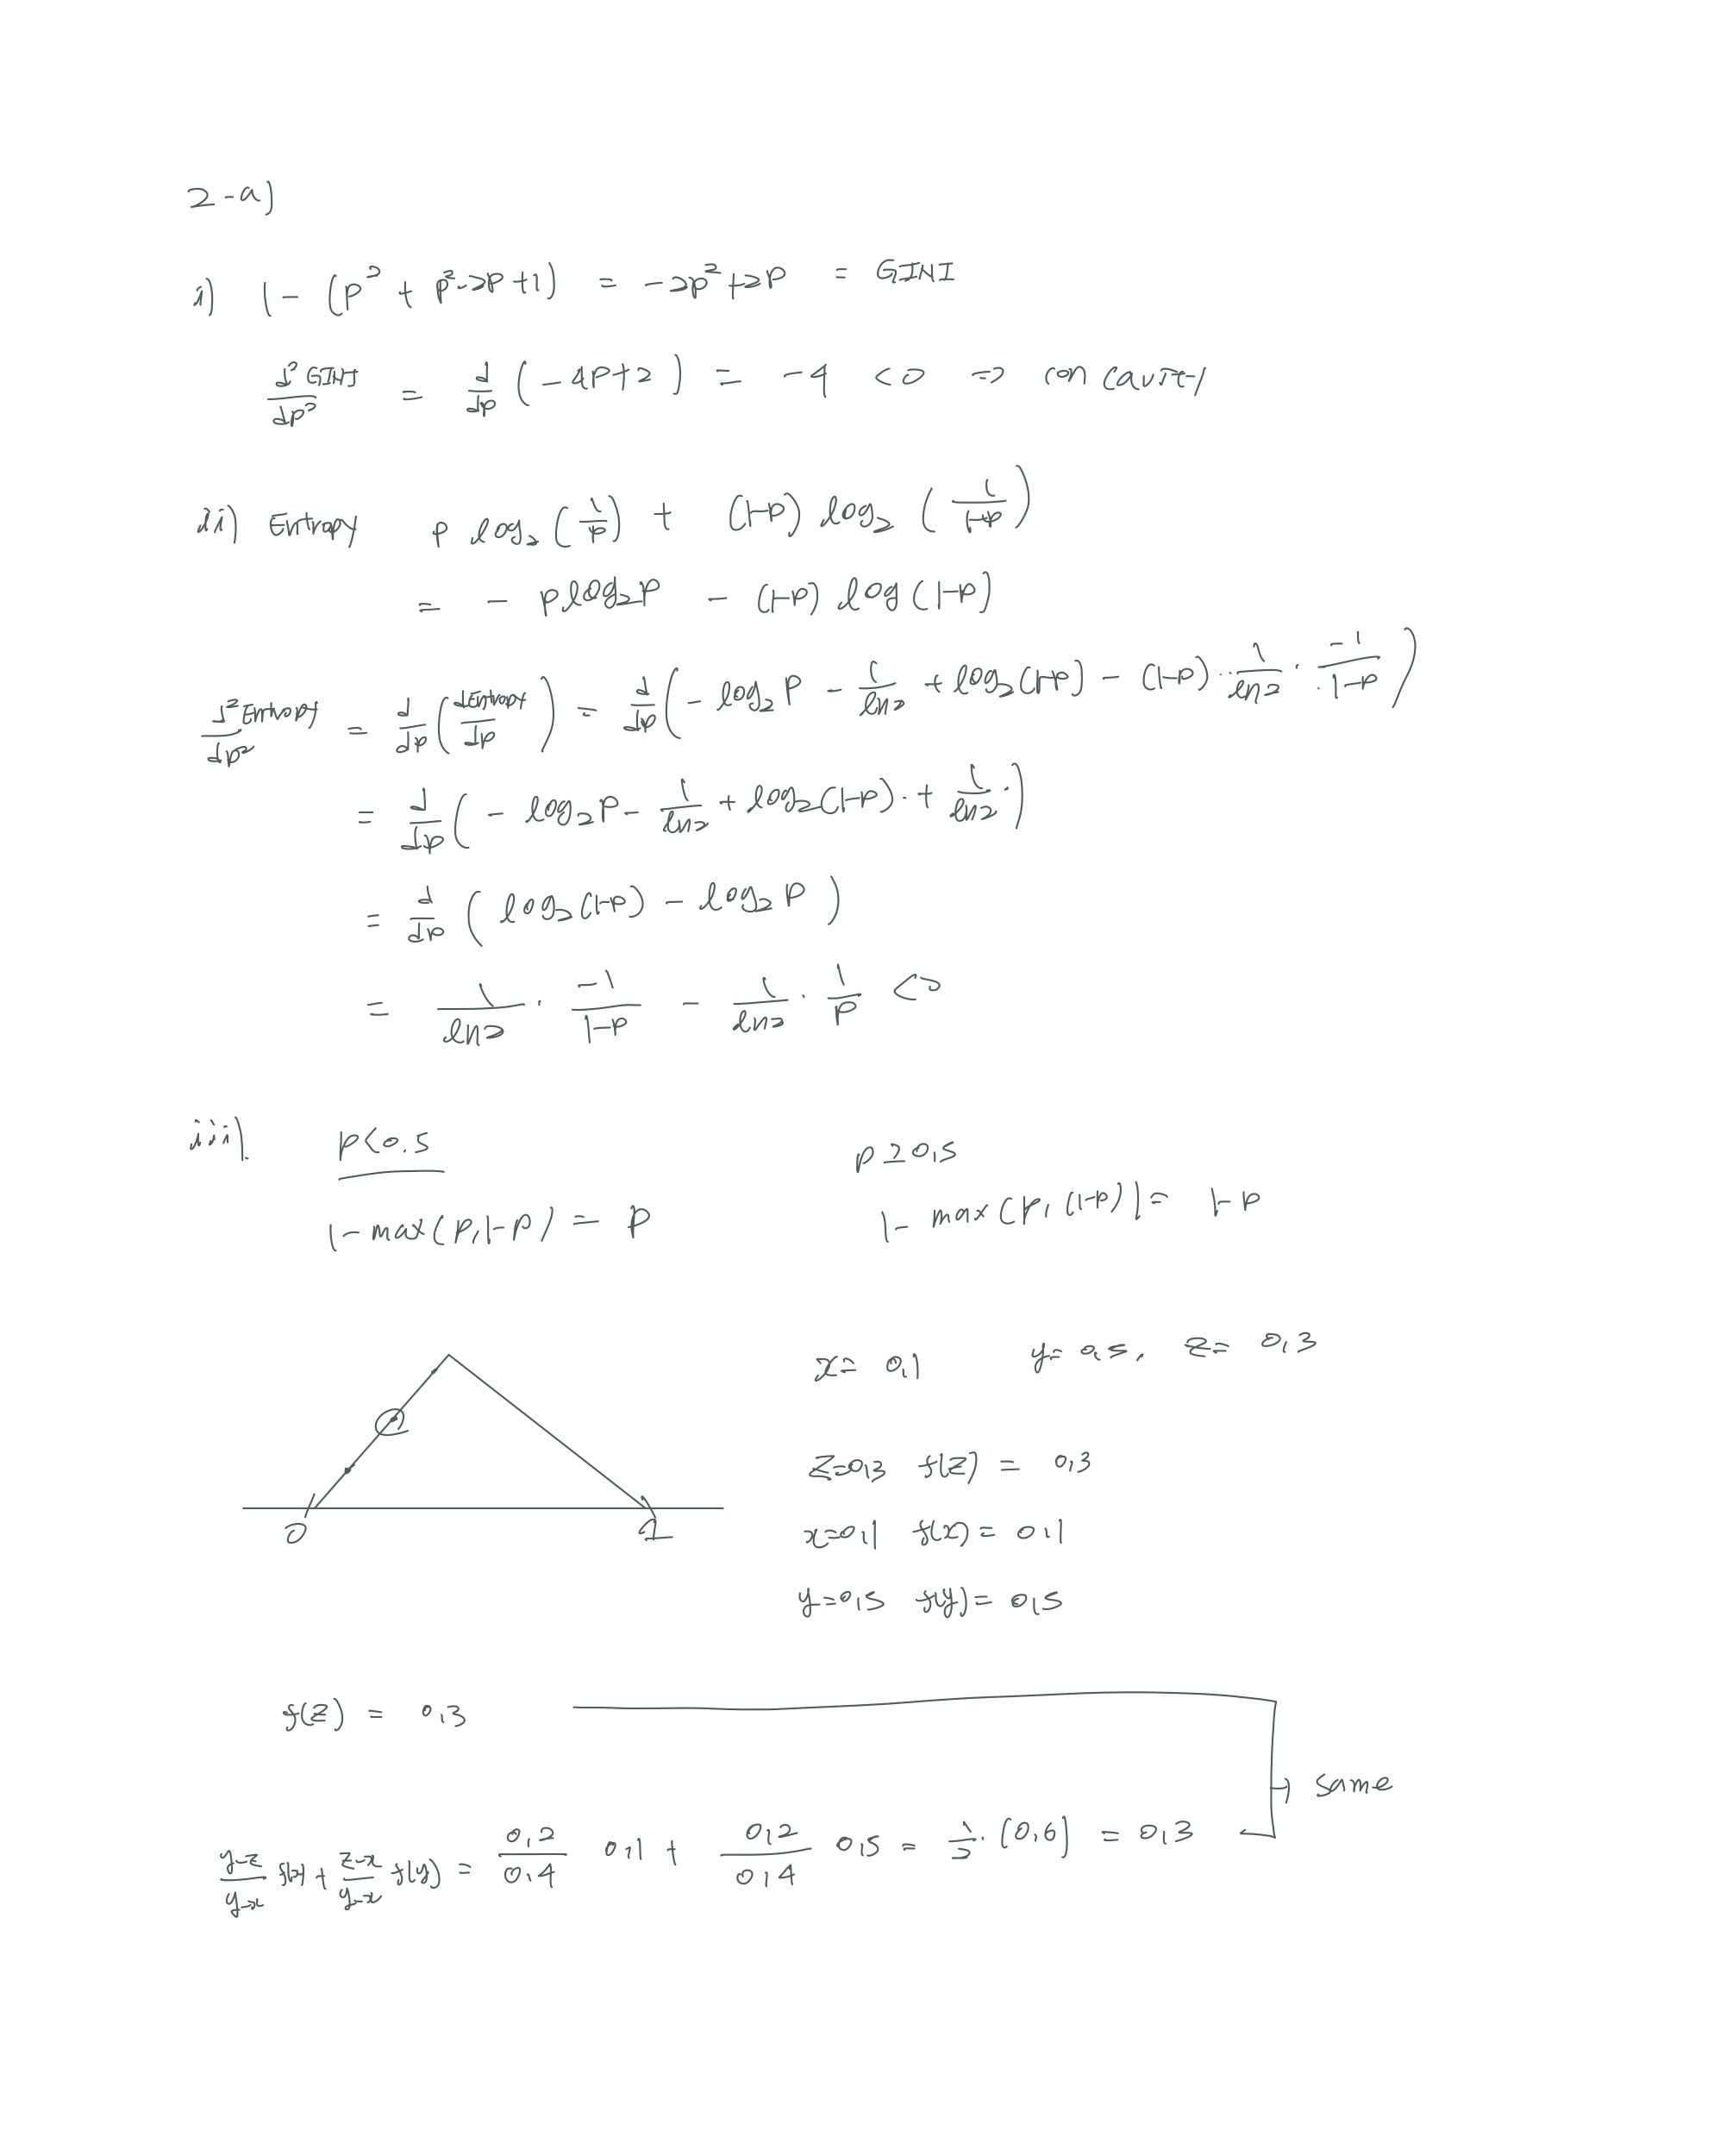 2-a)
i) 1 - (p² + p²-2p+1) = -2p²+2p = GINI
d²GINI/dp² = d/dp (-4p+2) = -4 <0 => concavity
ii) Entropy p log₂(1/p) + (1-p) log₂(1/(1-p))
= - p log₂p - (1-p) log(1-p)
d²Entropy/dp² = d/dp (dEntropy/dp) = d/dp (- log₂ p - 1/ln2 + log₂(1-p) - (1-p) · 1/ln2 · -1/(1-p))
= d/dp (- log₂p - 1/ln2 + log₂(1-p) · + 1/ln2 ·)
= d/dp (log₂(1-p) - log₂ p)
= 1/ln2 · -1/(1-p) - 1/ln2 · 1/p <0
iii). p<0.5 p≥0.5
1-max(p,1-p) = p 1- max(p, (1-p)) = 1-p
x= 0.1 y= 0.5, z= 0.3
z=0.3 f(z) = 0.3
x=0.1 f(x) = 0.1
y=0.5 f(y)= 0.5
0 1
f(z) = 0.3
→ same
(y-z)/(y-x) f(x) + (z-x)/(y-x) f(y) = 0.2/0.4 0.1 + 0.2/0.4 0.5 = 1/2 · (0.6) = 0.3